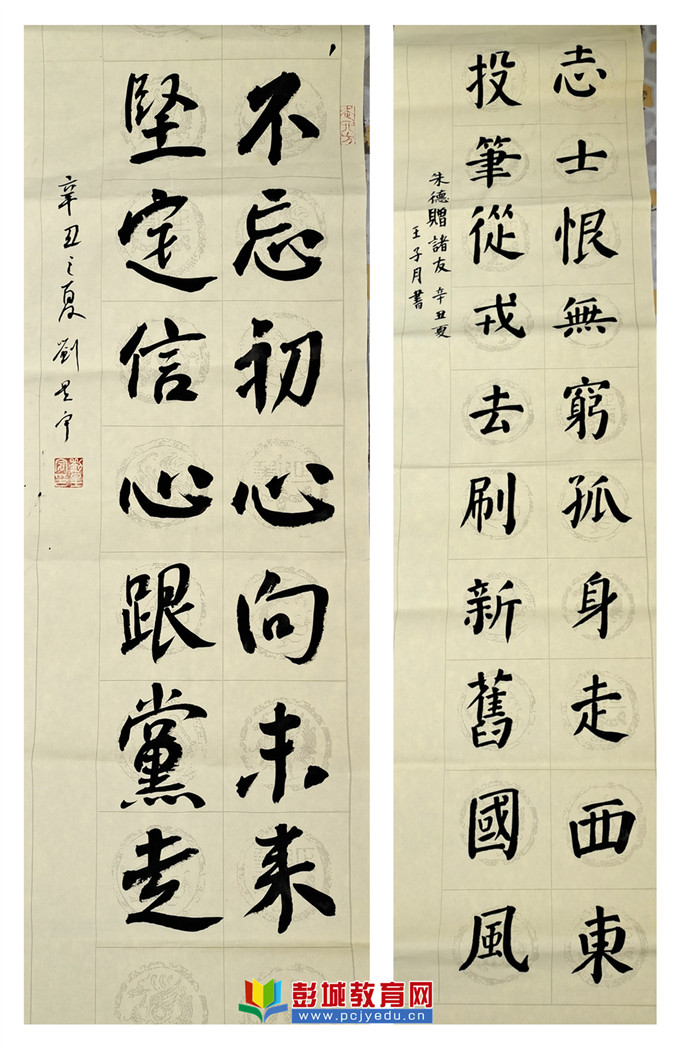 不忘初心向未来
堅定信心跟黨走
辛丑之夏 劉星宇
志士恨無窮孤身走西東
投筆從戎去刷新舊國風
朱德贈諸友 辛丑夏
王子月書
彭城教育网
www.pcjyedu.cn